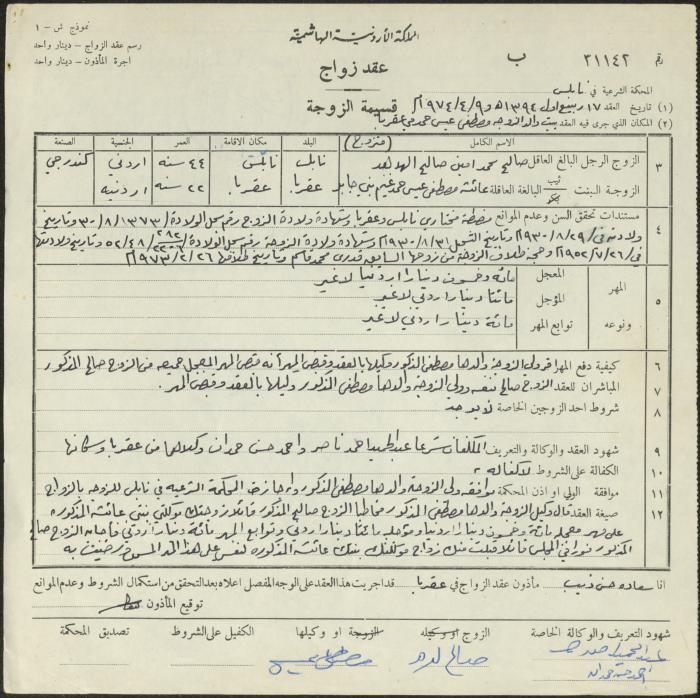 نموذج ش - ١
رسم عقد الزواج - دينار واحد
اجرة المأذون - دينار واحد
المملكة الأردنية الهاشمية
عقد زواج
رقم ٣١١٤٢ ب
المحكمة الشرعية في نابلس
(١) تاريخ العقد ١٧ ربيع اول ١٣٩٤هـ و ٩/٤/٩٧٤م قسيمة الزوجة
(٢) المكان الذي جرى فيه العقد بيت والد الزوجة مصطفى عيسى حمد في عقربا
الاسم الكامل (متزوج) البلد مكان الاقامة العمر الجنسية الصنعة
٣ الزوج الرجل البالغ العاقل صالح محمد امين صالح الهدهد نابلس نابلس ٤٤ سنه اردني كندرجي
الزوجة البنت ثيب بكر البالغة العاقلة عائشة مصطفى عيسى حمد بني جابر عقربا عقربا ٢٢ سنه اردنيه
٤ مستندات تحقق السن وعدم الموانع مضبطة مختاري نابلس وعقربا وشهادة ولادة الزوج رقم سجل الولادة ٣٠/٨/١٣٧٣ وتاريخ
ولادته في ٢٩/٨/٩٣٠م وتاريخ التسجيل ٣١/٨/٩٣٠م وشهادة ولادة الزوجة رقم سجل الولادة وتاريخ ولادتها
في ٢٦/٧/٩٥٢م وحجة طلاق الزوجة من زوجها السابق قدري محمد قاسم وتاريخ طلاقها ٢٦/٢/٩٧٣م
٥ المهر المعجل مائة وخمسون دينارا اردنيا لا غير
المؤجل مائتا دينار اردني لا غير
ونوعه توابع المهر مائة دينار اردني لا غير
٦ كيفية دفع المهر اقر ولي الزوجة والدها مصطفى المذكور وكيلها بالعقد وقبض المهر أنه قبض المهر المعجل جميعه من الزوج صالح المذكور
٧ المباشران للعقد الزوج صالح بنفسه وولي الزوجة والدها مصطفى المذكور وكيلها بالعقد وقبض المهر.
٨ شروط احد الزوجين الخاصة لا يوجد
٩ شهود العقد والوكالة والتعريف المكلفان شرعا عبد الحميد احمد ناصر واحمد حسن حمدان وكلاهما من عقربا وسكانها
١٠ الكفالة على الشروط لا كفالة
١١ موافقة الولي او اذن المحكمة موافقة ولي الزوجة والدها مصطفى المذكور واجازة المحكمة الشرعية في نابلس للزوجه بالزواج
١٢ صيغة العقد قال وكيل الزوجة والدها مصطفى المذكور مخاطبا الزوج صالح المذكور قائلا زوجتك موكلتي بنتي عائشة المذكوره
على مهر معجله مائة وخمسون دينارا اردنيا ومؤجله مائتا دينارا اردني وتوابع المهر مائة دينار اردني فأجابه الزوج صالح
المذكور فورا في المجلس قائلا قبلت منك زواج موكلتك بنتك عائشة المذكوره لنفسي على هذا المهر المسمى ورضيت به
انا سعاده حسن ذيب مأذون عقد الزواج في عقربا قد اجريت هذا العقد على الوجه المفصل اعلاه بعد التحقق من استكمال الشروط وعدم الموانع
توقيع المأذون
شهود التعريف والوكالة الخاصة الزوج او وكيله الزوجة او وكيلها الكفيل على الشروط تصديق المحكمة
عبد الحميد احمد صالح الهدهد مصطفى عيسى
احمد حسن حمدان